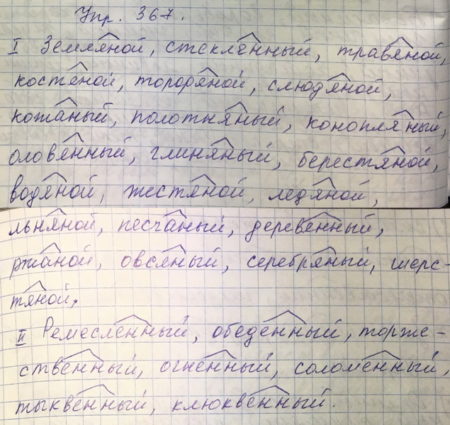 Упр. 367.
I Земляной, стеклённый, травяной,
костяной, торфяной, слюдяной,
кожаный, полотняный, конопляный,
оловенный, глиняный, берестяной,
водяной, жестяной, ледяной,
льняной, песчаный, деревенный,
ржаной, овсяный, серебряный, шерс-
тяной.
II Ремесленный, обеденный, торже-
ственный, огненный, соломенный,
тыквенный, клюквенный.